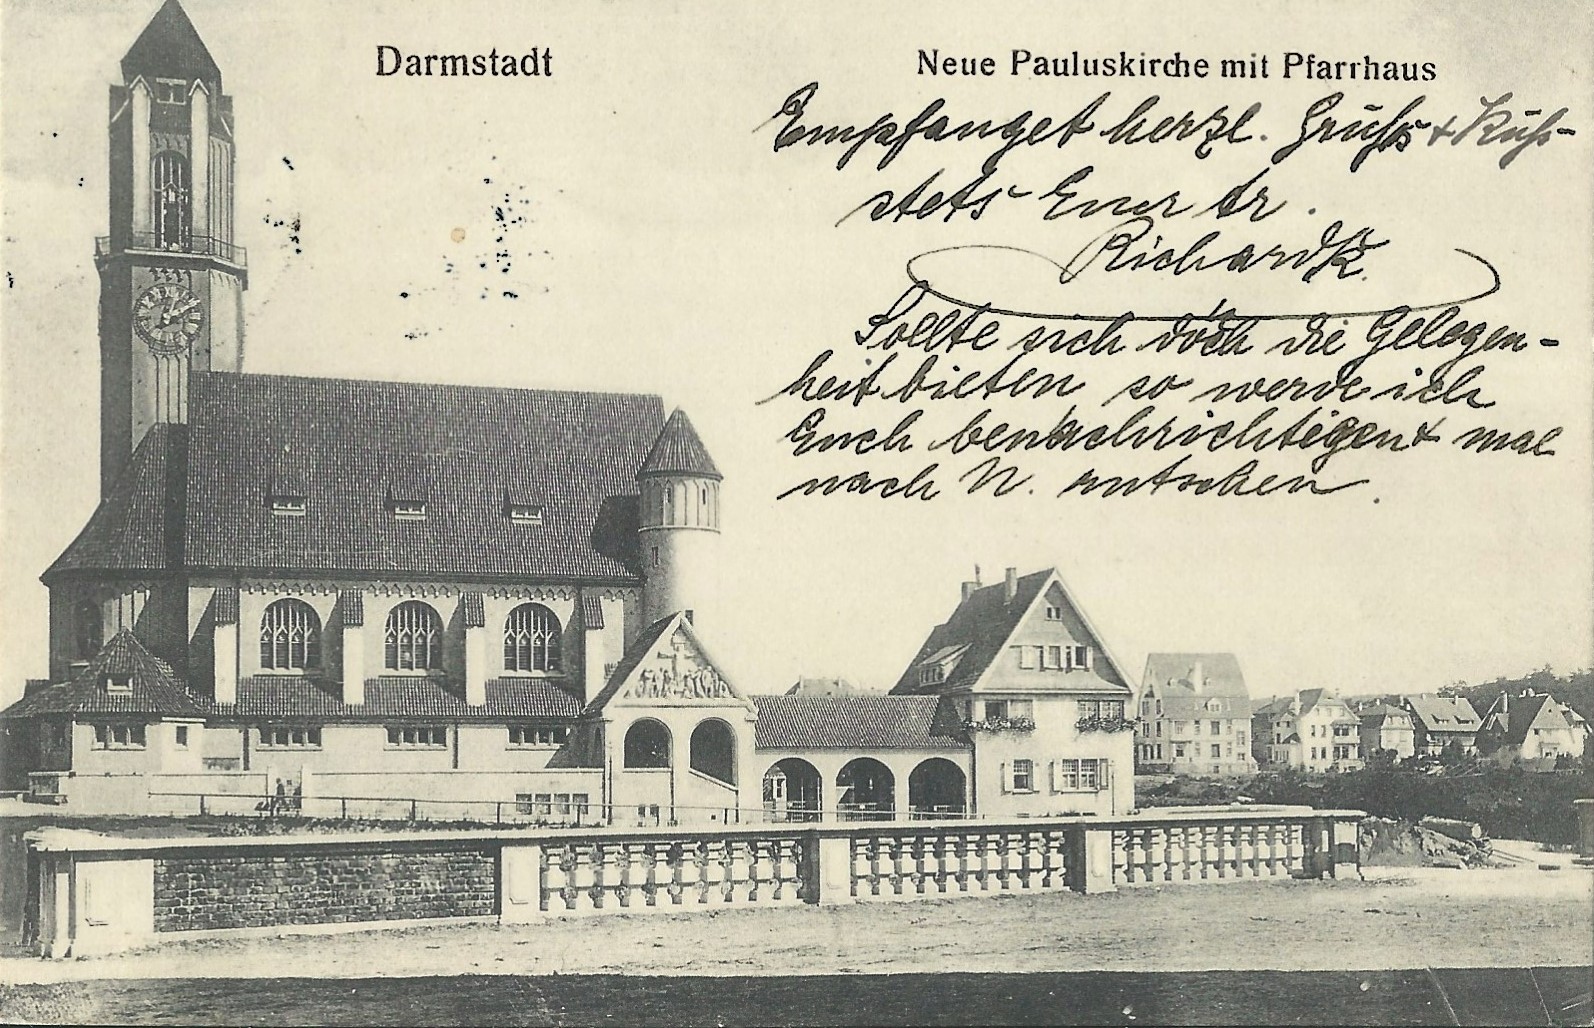 Darmstadt
Neue Pauluskirche mit Pfarrhaus
Empfanget herzl. Grüße + Küße
stets Euer tr.
Richard K.
Sollte sich doch die Gelegen-
heit bieten so werde ich
Euch benachrichtigen + mal
nach N. rutschen.